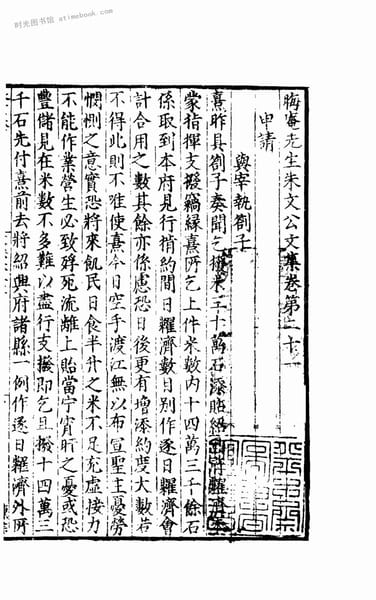 时光图书馆 · atimebook.com
晦庵先生朱文公文集卷第二十一
申請
與宰執劄子
熹昨具劄子奏聞乞撥米三十萬石添貼紹興府糶濟
蒙指揮支撥竊緣熹所乞上件米數内十四萬三千餘石
係取到本府見行措約間日糶濟數目別作逐日糶濟會
計合用之數其餘亦係慮恐日後更有增添約度大數若
不得此則不唯使熹今日空手渡江無以布宣聖主憂勞
憫惻之意實恐將來飢民日食半升之米不足充虛接力
不能作業營生必致殍死流離上貽當宁宵旰之憂或恐
豐儲見在米數不多難以盡行支撥即乞且撥十四萬三
千石先付熹前去將紹興府諸縣一例作逐日糶濟外所